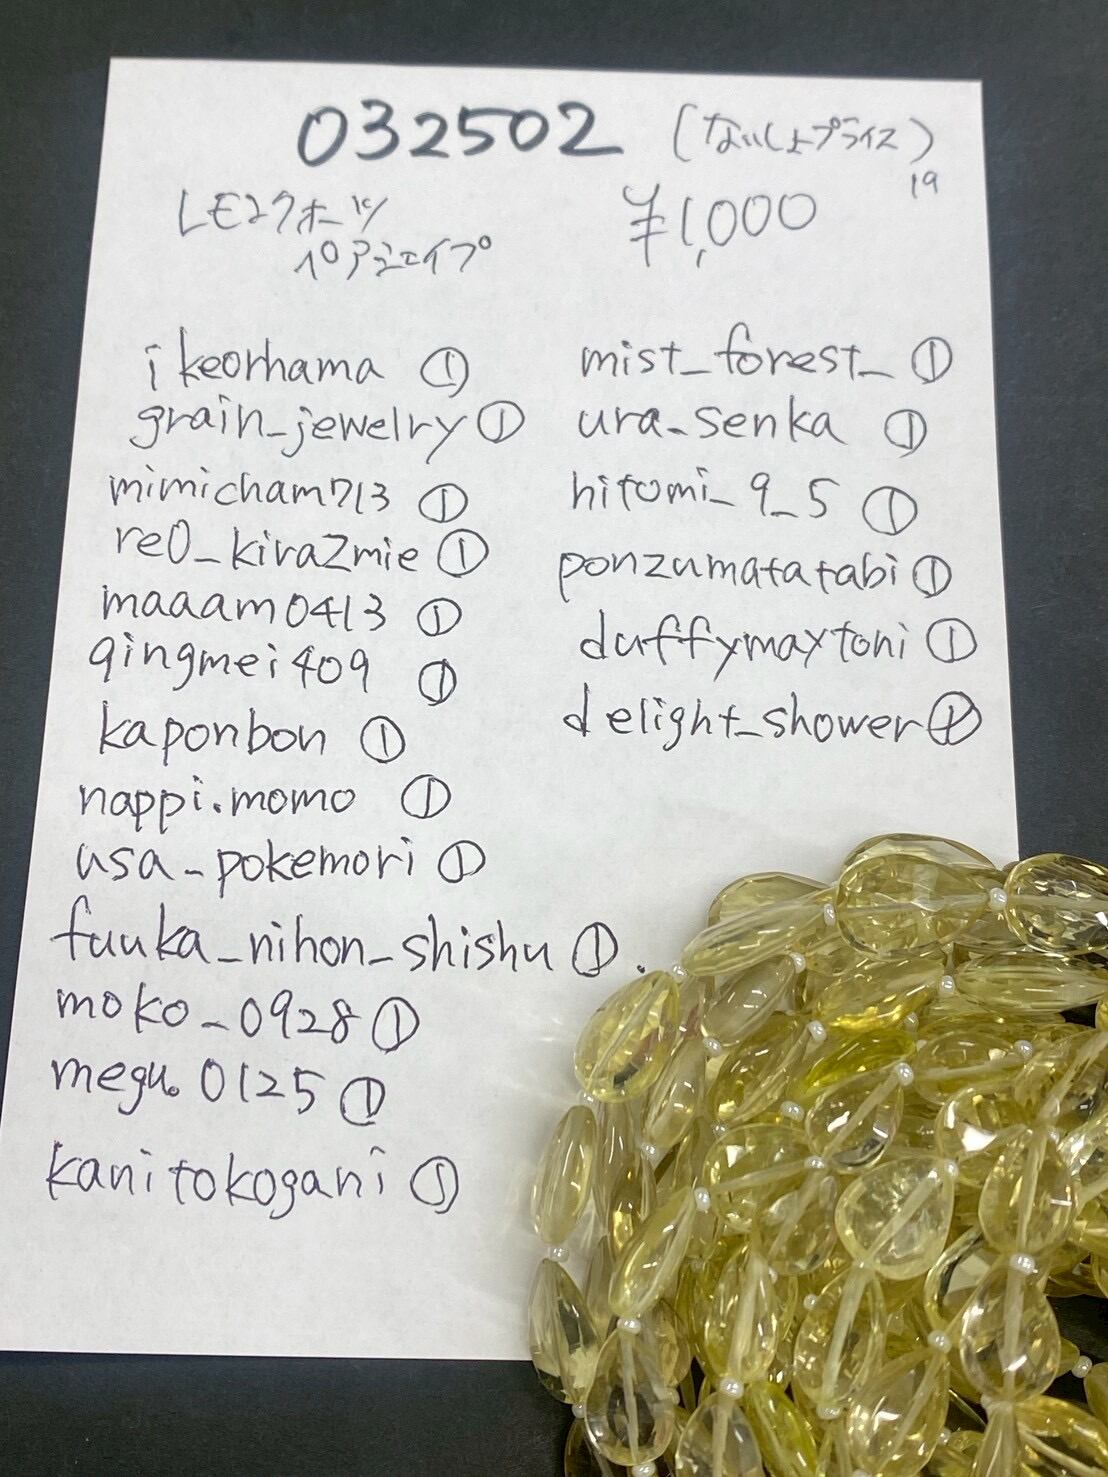 032502 (ないしょプライス)
19
レモンクォーツ ¥1,000
ペアシェイプ
ikeorhama ①
grain_jewelry ①
mimicham713 ①
re0_kira2mie ①
maaam0413 ①
qingmei409 ①
kaponbon ①
nappi.momo ①
usa_pokemori ①
fuuka_nihon_shishu ①.
moko_0928 ①
megu.0125 ①
kanitokogani ①
mist_forest_ ①
ura_senka ①
hitomi_9_5 ①
ponzumatatabi ①
duffymaytoni ①
delight_shower